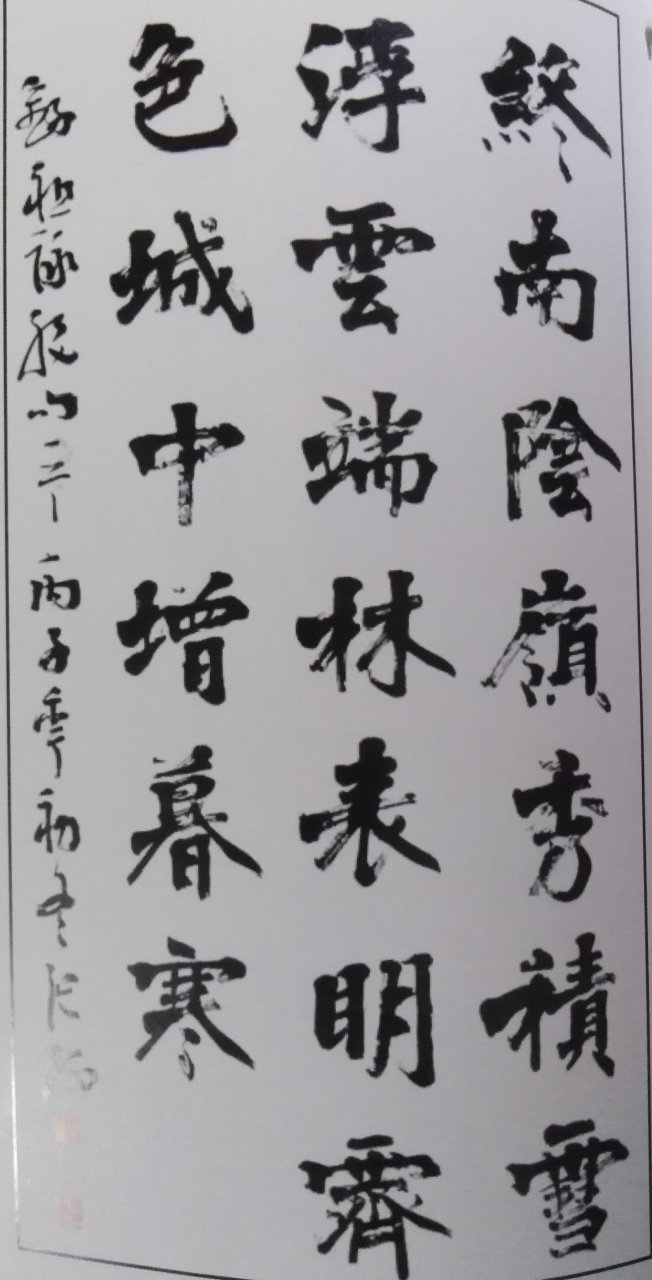 終南陰嶺秀積雪
浮雲端林表明霽
色城中增暮寒
錄祖詠 丙子年初冬